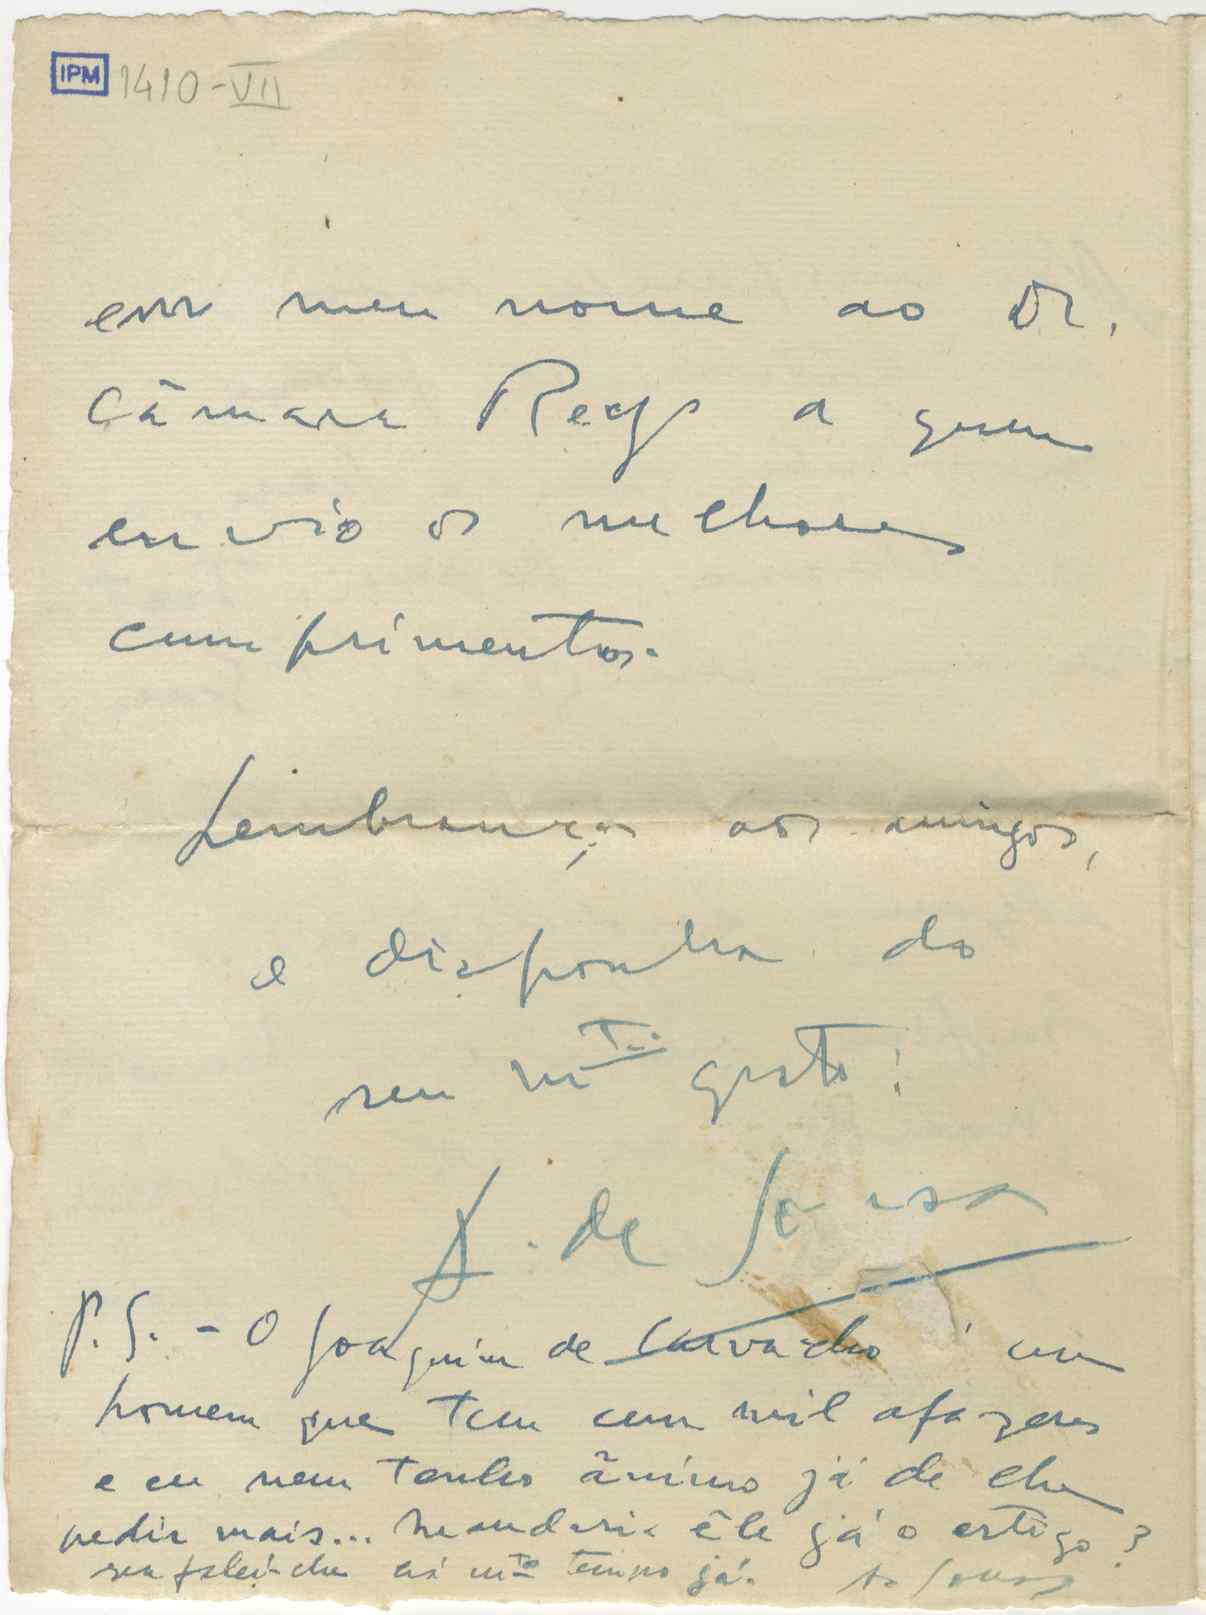 IPM 1410-VII
em meu nome ao Dr.
Câmara Reys a quem
envio os melhores
cumprimentos.
Lembranças aos amigos,
e disponha do
seu mto. grato:
A. de Sousa
P.S. - O Joaquim de Carvalho é um
homem que tem cem mil afazeres
e eu nem tenho ânimo já de lhe
pedir mais... Mandaria êle já o artigo?
falei-lhe há mto tempo já. A. Sousa